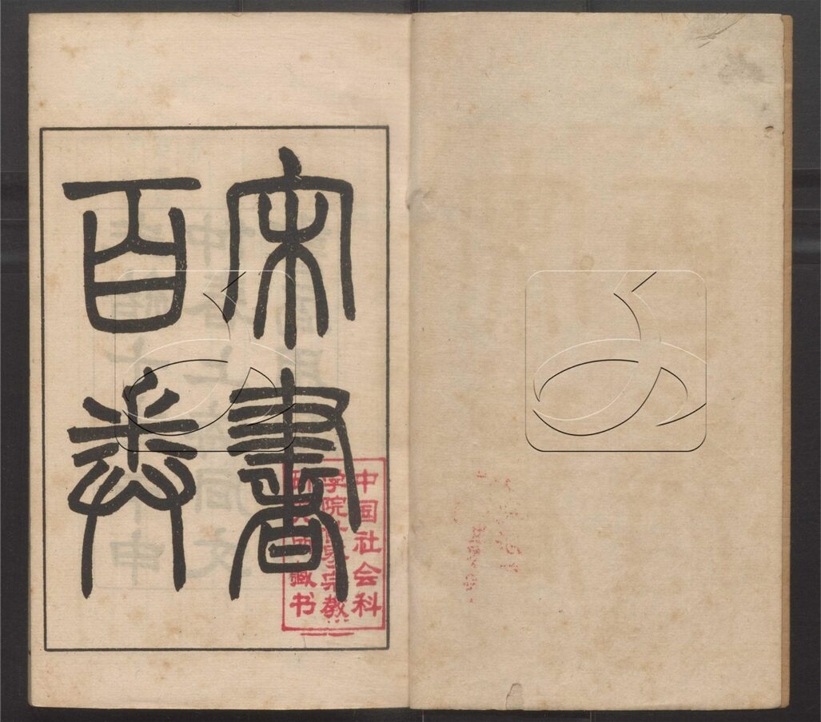 宋書
百卷
中国社会科
学院世界宗教
研究所藏书